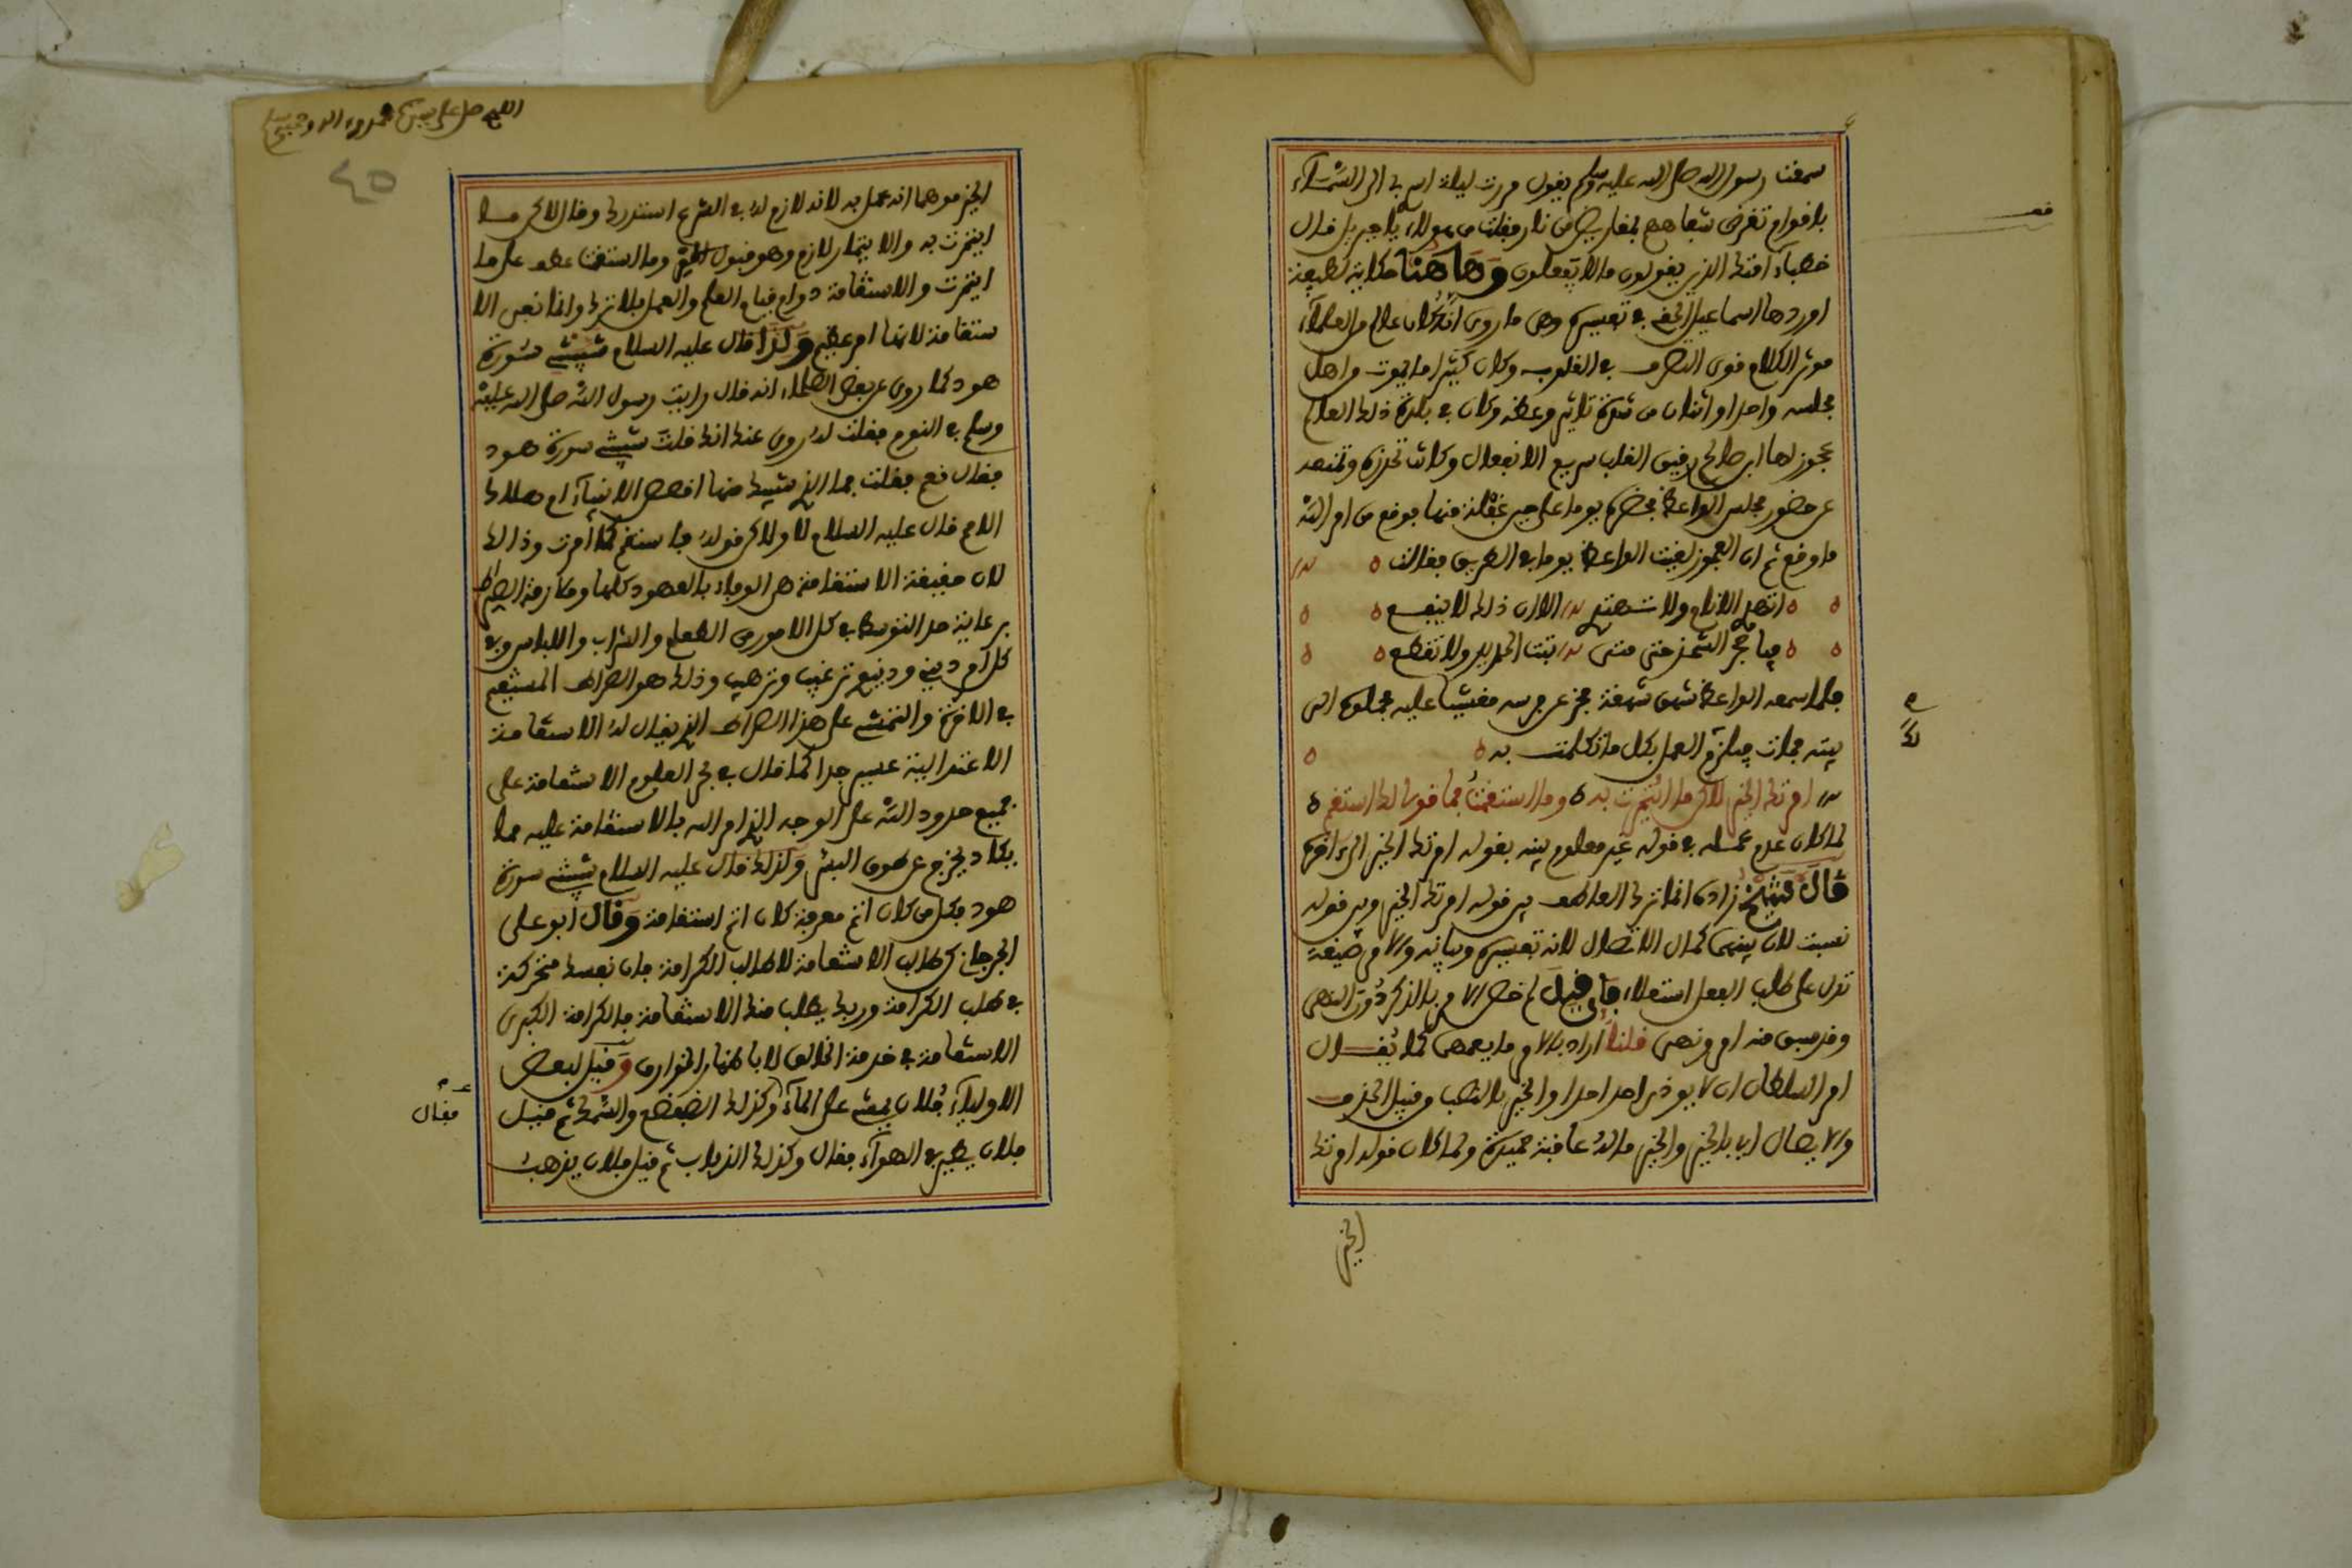 سمعت رسول الله صلى الله عليه وسلم يقول مررت ليلة اسري بي الى السماء
باقوام تقرض شفاههم بمقاريض من نار فقلت من هولاء يا جبريل قال
خطباء امتك الذين يقولون ما لا يفعلون وها هنا حكاية لطيفة
اوردها اسماعيل الحقي في تفسيره وهي ما روي انه كان عالم من العلماء
موثر الكلام قوي التصرف في القلوب وكان كثيرا ما يموت من اهل
مجلسه واحد او اثنان من شدة تاثير وعظه وكان في بلدة ذلك العالم
عجوز لها ابن صالح رقيق القلب سريع الانفعال وكانت تحرزه وتمنعه
عن حضور مجلس الواعظ فحضره يوما على حين غفلة منها فوقع من امر الله
ما وقع ثم ان العجوز لقيت الواعظ يوما في الطريق فقالت
اتهدي الانام ولا تهتدي الا ان ذلك لا ينفع
فيا حجر الشحذ حتى متى تسن الحديد ولا تقطع
فلما سمعه الواعظ شهق شهقة فخر عن فرسه مغشيا عليه فحملوه الى
بيته فمات فيلزم العمل بكل ما تكلمت به
امرتك الخير لاكن ما ائتمرت به وما استقمت فما قولي لك استقم
لما كان عدم عمله في قوله غير معلوم بينه بقوله امرتك الخير الى اخره
قال شيخ زاده انما ترك العاطف بين قوله امرتك الخير وبين قوله
نسبت لان بينهما كمال الاتصال لانه تفسيره وبيانه والامر صيغة
تدل على طلب الفعل استعلاء فان قيل لم خص الامر بالذكر دون النهي
وقد سبق منه امر ونهي قلنا اراد بالامر ما يعمهما كما يقال
امر السلطان ان لا يوذي احد احدا والخير بالنصب من قبيل الحذف
والايصال اي بالخير والخير ما له عاقبة حميدة ولما كان قوله امرتك
الخير
اللهم صل على سيدنا محمد وءاله وصحبه
٤٥
الخير موهما انه عمل به لانه لازم له في الشرع استدرك وقال لاكن ما
ايتمرت به والايتمار لازم وهو قبول الامر وما استقمت عطف على ما
ايتمرت والاستقامة دوام قيام العلم والعمل بلا ترك وانما نفى الا
ستقامة لانها امر عظيم ولذا قال عليه السلام شيبتني سورة
هود كما روي عن بعض العلماء انه قال رايت رسول الله صلى الله عليه
وسلم في النوم فقلت له روي عنك انك قلت شيبتني سورة هود
فقال نعم فقلت فما الذي شيبك منها اقصص الانبياء ام هلاك
الامم قال عليه السلام لا ولاكن قوله فاستقم كما امرت وذالك
لان حقيقة الاستقامة هي الوفاء بالعهود كلها وملازمة الصراط
برعاية حد التوسط في كل الامور من الطعام والشراب واللباس وفي
كل امر ديني ودنيوي ترغيب وترهيب وذلك هو الصراط المستقيم
في الاخرة والتمشي على هذا الصراط الذي يقال له الاستقامة
الاعتدالية عسير جدا كما قال في بحر العلوم الاستقامة على
جميع حدود الله على الوجه الذي امر الله بالاستقامة عليه مما
يكاد يخرج عن طوق البشر ولذلك قال عليه السلام شيبتني سورة
هود فكل من كان اتم معرفة كان اتم استقامة وقال ابو علي
الجرجاني كن طالب الاستقامة لا طالب الكرامة فان نفسك متحركة
في طلب الكرامة وربك يطلب منك الاستقامة فالكرامة الكبرى
الاستقامة في خدمة الخالق لا باظهار الخوارق وقيل لبعض
الاولياء فلان يمشي على الماء وكذلك الضفدع والسمك ثم قيل
فقال
فلان يطير في الهواء فقال وكذلك الذباب ثم قيل فلان يذهب